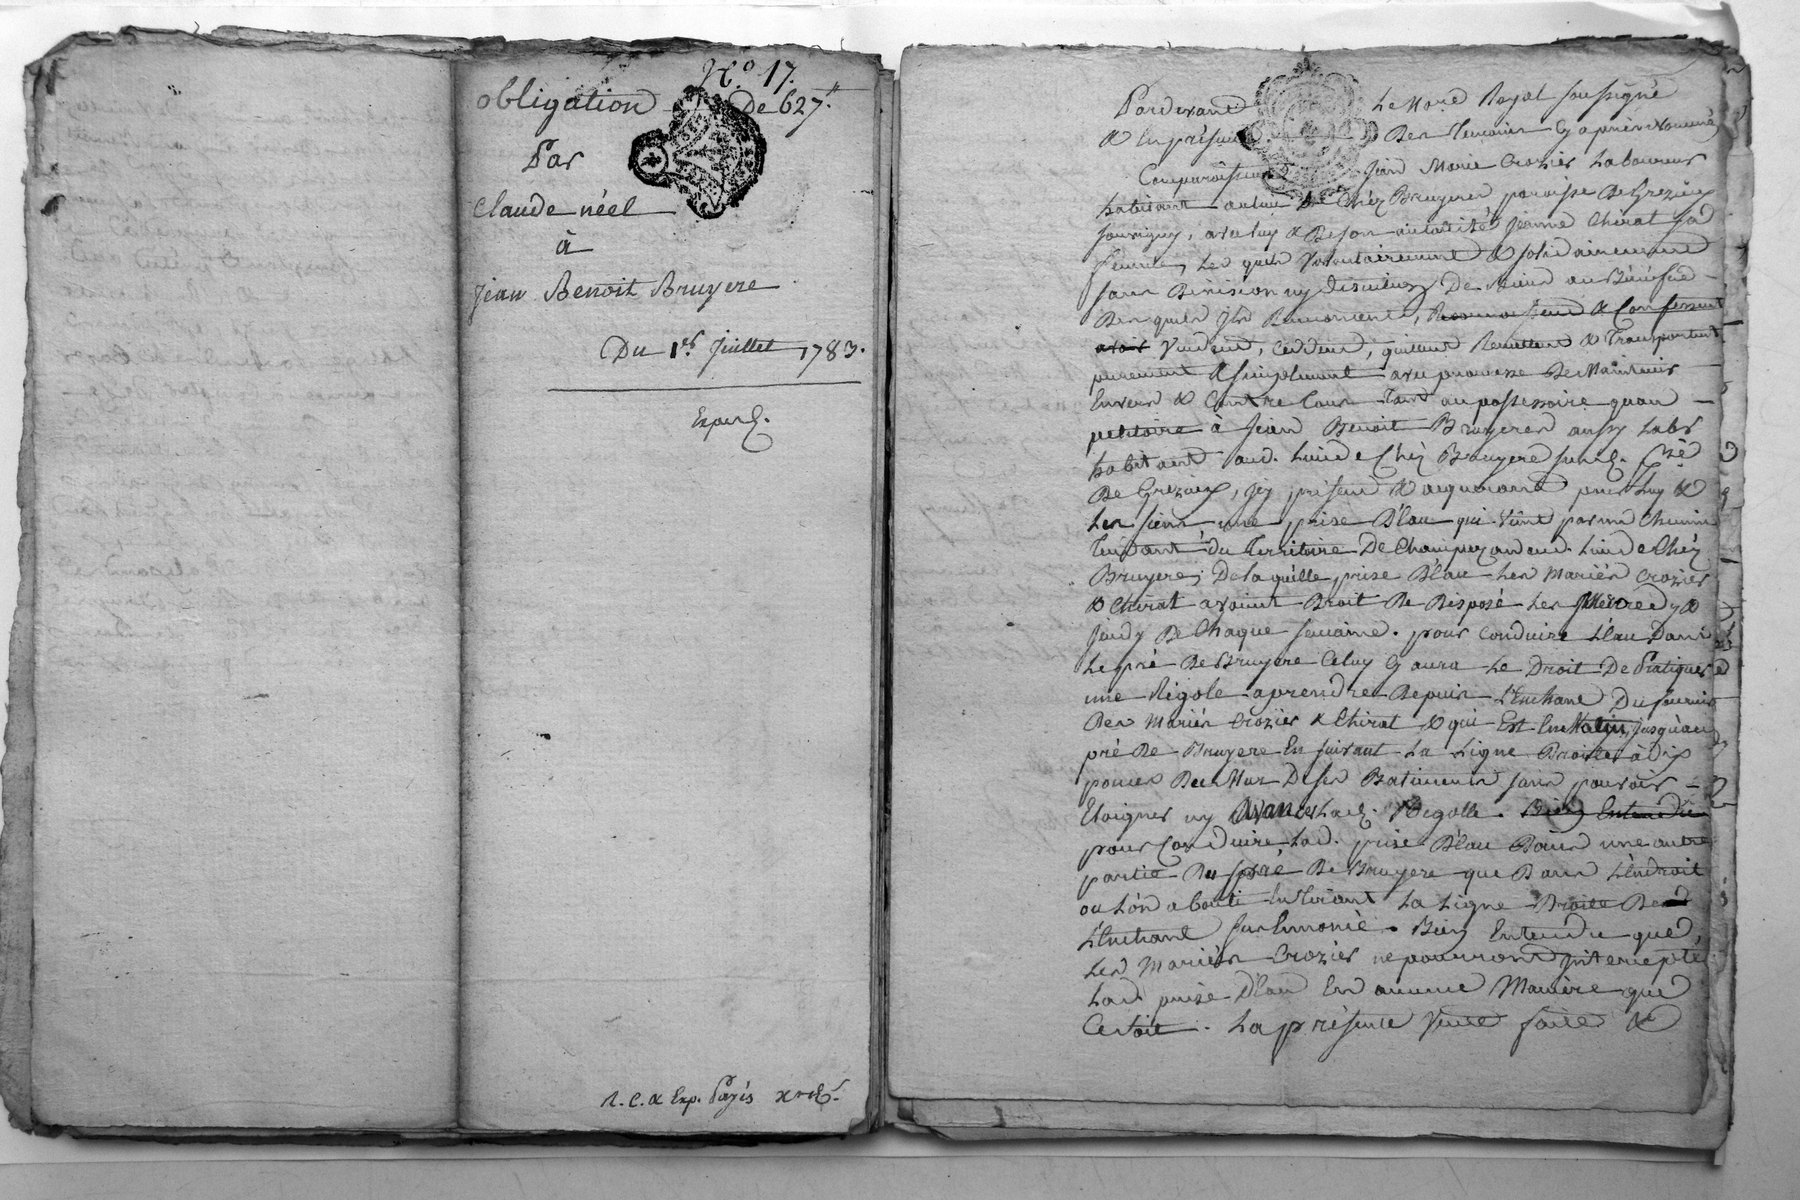 N.º 17.
obligation De 627ᵗᵗ
Par
Claude néel
à
Jean Benoit Bruyere
Du 1.er Juillet 1783.
Exped.
R. C. & Exp. Payés
Pardevant Le Nore Royal soussigné
& En présence Des Temoins Cy après Nommés
Comparoissent Jean Marie Crozier Laboureur
habitant au lieu De Chéz Bruyeres paroisse De Grezieu
souvigny, avec luy & De son autorité Jeanne Chirat sa
femme, Les quels Volontairement & solidairement
sans Division ny Discution De Biens au Bénéfice
Des quels Ils Renoncent, Reconnoissent & Confessent
avoir Vendent, Ceddent, quittent Remettent & Transportent
purement & simplement avec promesse De Maintenir
Envers & Contre Tous Tant au possessoire quau
petitoire à Jean Benoit Bruyeres aussy Labr
habitant aud. Lieu de Chéz Bruyere susd.
De Grezieux, Icy présent & acquerant pour Luy &
Les siens une prise D'Eau qui Vient par un Chemin
Tendant du Territoire De aud. Lieu de Chéz
Bruyere, De laquélle prise D'Eau Les Mariés Crozier
& Chirat avoient Droit De Disposé Les Mécredy &
Jeudy De Chaque semaine. pour Conduire L'Eau Dans
Le pré De Bruyere Celuy Cy aura Le Droit De Pratiquer
une Rigole aprendre Depuis Du
Des Mariés Crozier & Chirat & qui Est En Matin, Jusqu'au
pré De Bruyere En suivant La Ligne Droite à dix
pouces Du Mur De ses Batiments sans pouvoir
Eloigner ny Avancer Lad. Regolle. Bien Entendu
pour Conduire, Lad. prise D'Eau Dans une autre
partie Du pré De Bruyere que Dans L'Endroit
ou L'on abouti En Tirant La Ligne Droite De
sus Ennoncé. Bien Entendu que
Les Mariés Crozier ne pourront Intercepté
Lad. prise D'Eau En aucune Manière que
Ce soit. La présente Vente faite &